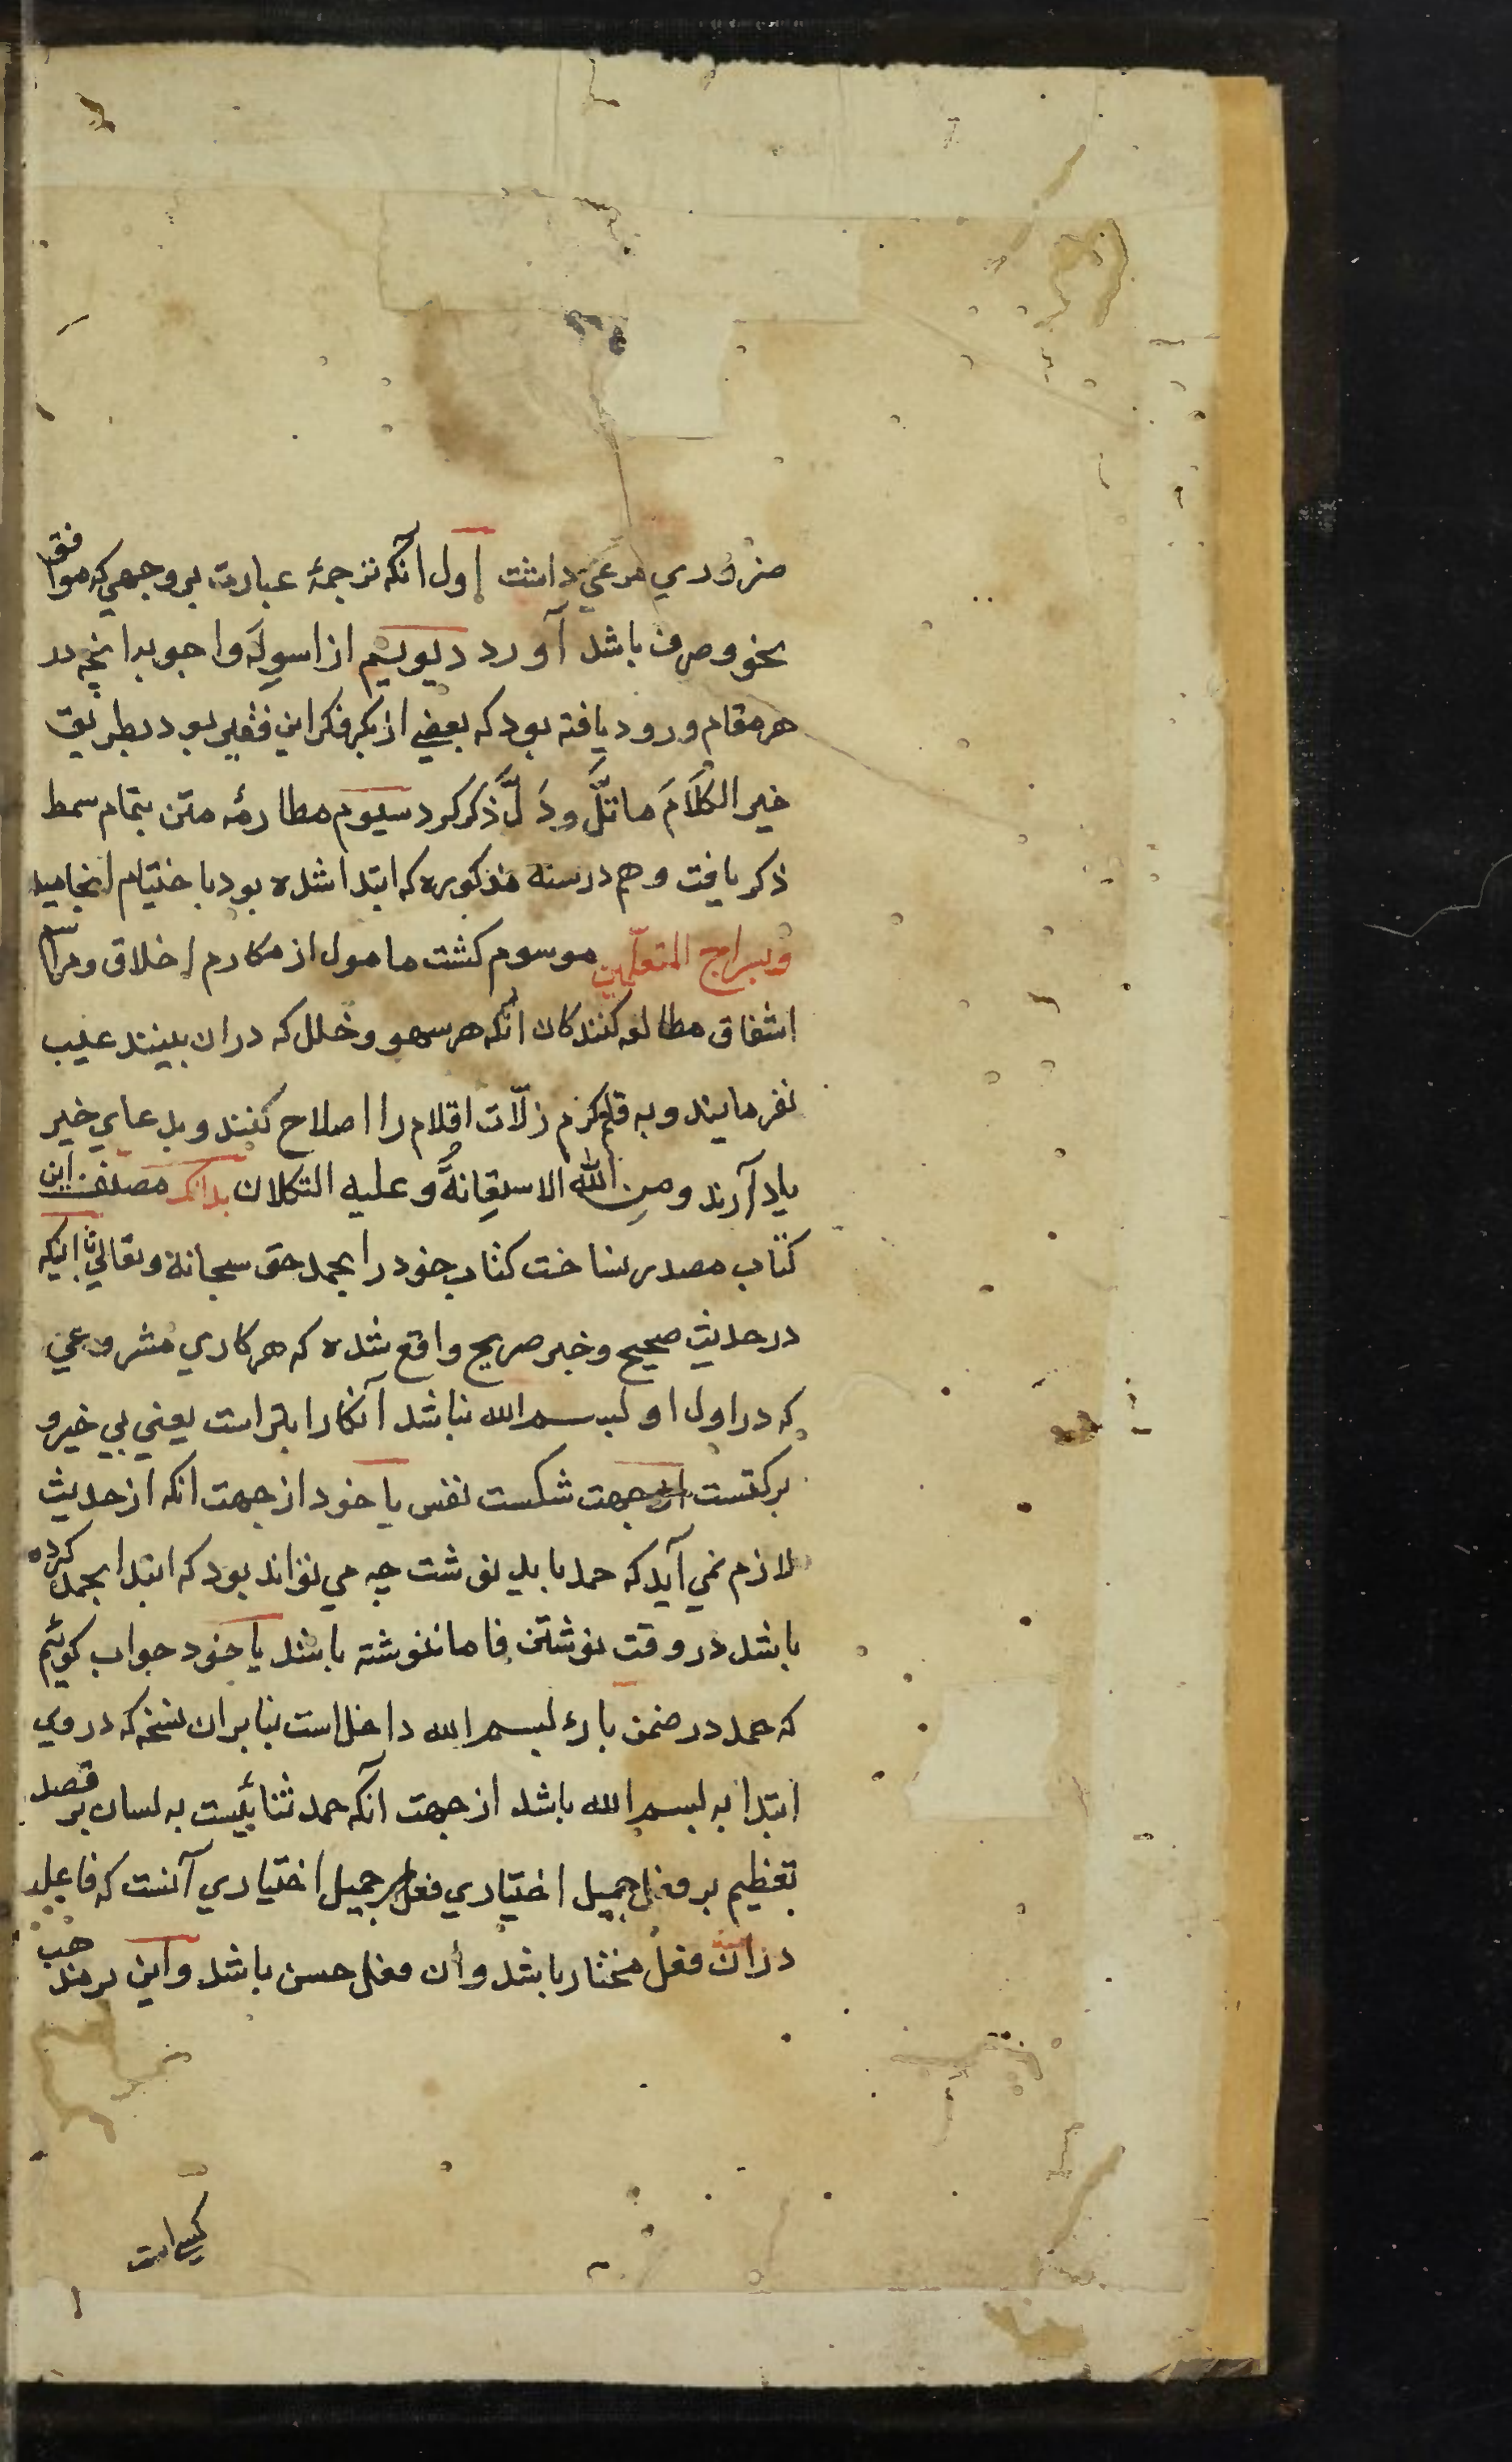 ضروري مرعي داشت اول آنكه ترجمۀ عبارت بر وجهي كه موافق
نحو و صرف باشد آورد ديويم از اسوله و اجوبه انچه در
هر مقام ورود يافته بود كه بعضي از بكر فكر اين فقير بود بطريق
خير الكلامَ ما قلَّ و دَلَّ ذكر كرد سيوم متن بتمام سمط
ذكر يافت و هم در سنه مذكوره كه ابتدا شده بود باختيام انجاميد
و بسراج المتعلّمين موسوم كشت مامول از مكارم اخلاق و مراسم
اشفاق مطالعه كنندكان آنكه هر سهو و خلل كه دران بينند عيب
نفرمايند و به قلم كرم زلّات اقلام را اصلاح كنند و بدعاي خير
ياد آرند و مِن الله الاستِعانةُ و عليه التكلان بدانكه مصنف اين
كتاب مصدر نساخت كتاب خود را بحمد حق سبحانه و تعالي با اينكه
در حديث صحيح و خبر صريح واقع شده كه هر كاري مشروعي
كه در اول او بسم الله نباشد آنكار ابتر است يعني بي خير و
بركتست از جهت شكست نفس يا خود از جهت انكه از حديث
لازم نمي آيد كه حمد بايد نوشت چه مي تواند بود كه ابتدا بحمد كرده
باشد در وقت نوشتن فاما ننوشته باشد يا خود جواب كوئيم
كه حمد در ضمن باء بسم الله داخل است بنابران نسخه كه در وي
ابتدا به بسم الله باشد از جهت آنكه حمد ثنائيست به لسان بر قصد
تعظيم بر فعل جميل اختياري فعل جميل اختياري آنست كه فاعل
دران فعل مختار باشد و أن فعل حسن باشد و اين بر مذهب
كسي است
١